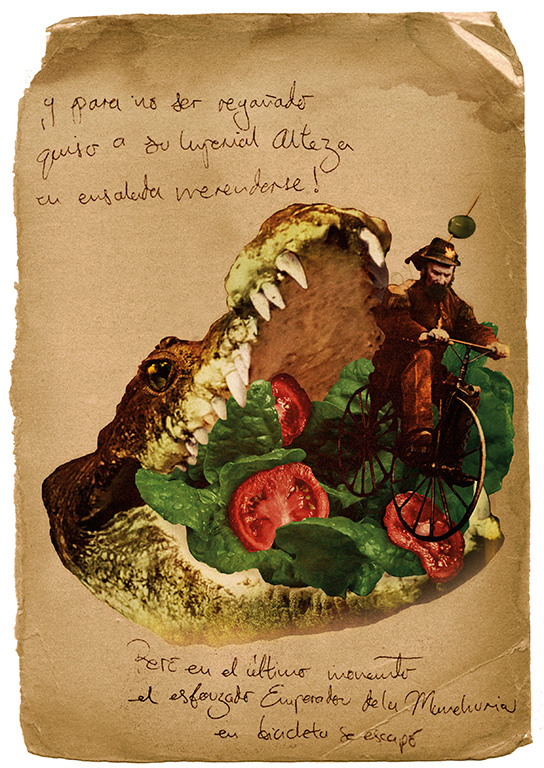 ¡y para no ser regañado
quiso a su Imperial Alteza
en ensalada merendarse!
Pero en el último momento
el esforzado Emperador de la Manchuria
en bicicleta se escapó